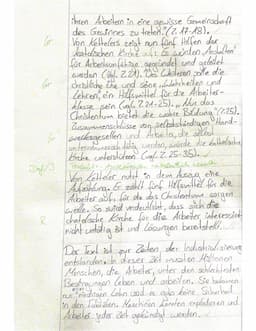 ihren Arbeitern in eine gewisse Gemeinschaft
des Gewinnes zu treten." (Z. 17-18).
Gr Von Kettelers zeigt nun fünf Hilfen der
katholischen Kirche auf. Es würden „Anstalten"
für Arbeitsunfähige gegründet und geleitet
werden (vgl. Z. 21). Des Weiteren solle die
Gr christliche Ehe und seine „Wahrheiten und
Lehren", ein Hilfsmittel für die Arbeiter-
klasse sein (vgl. Z. 21-25). „Nur das
Christentum bietet die wahre Bildung" (Z. 25).
Zusammenschlüsse von selbstständigen Hand-
Gr werksgesellen und Arbeite, die
unternehmen würde die katholische
Kirche unterstützen (vgl. Z. 25-35).
Von Ketteler nutzt in dem Auszug eine
Aufzählung. Er zählt fünf Hilfsmittel für die
Arbeiter auf, für die das Christentum sorgen
wolle. So wird verdeutlicht, dass sich die
R christliche Kirche für die Arbeiter interessiert
nicht untätig ist und Lösungen bereitstellt.
Der Text ist zur Zeiten, der Industrialisierung
entstanden. In dieser Zeit mussten Millionen
Menschen, die Arbeiter, unter den schlechtesten
Bedingungen leben und arbeiten. Sie bekamen
nur niedrigen Lohn und es gab keine Sicherheit
in den Fabriken. Maschinen könnten explodieren und
Arbeiter jeder Zeit gekündigt werden.